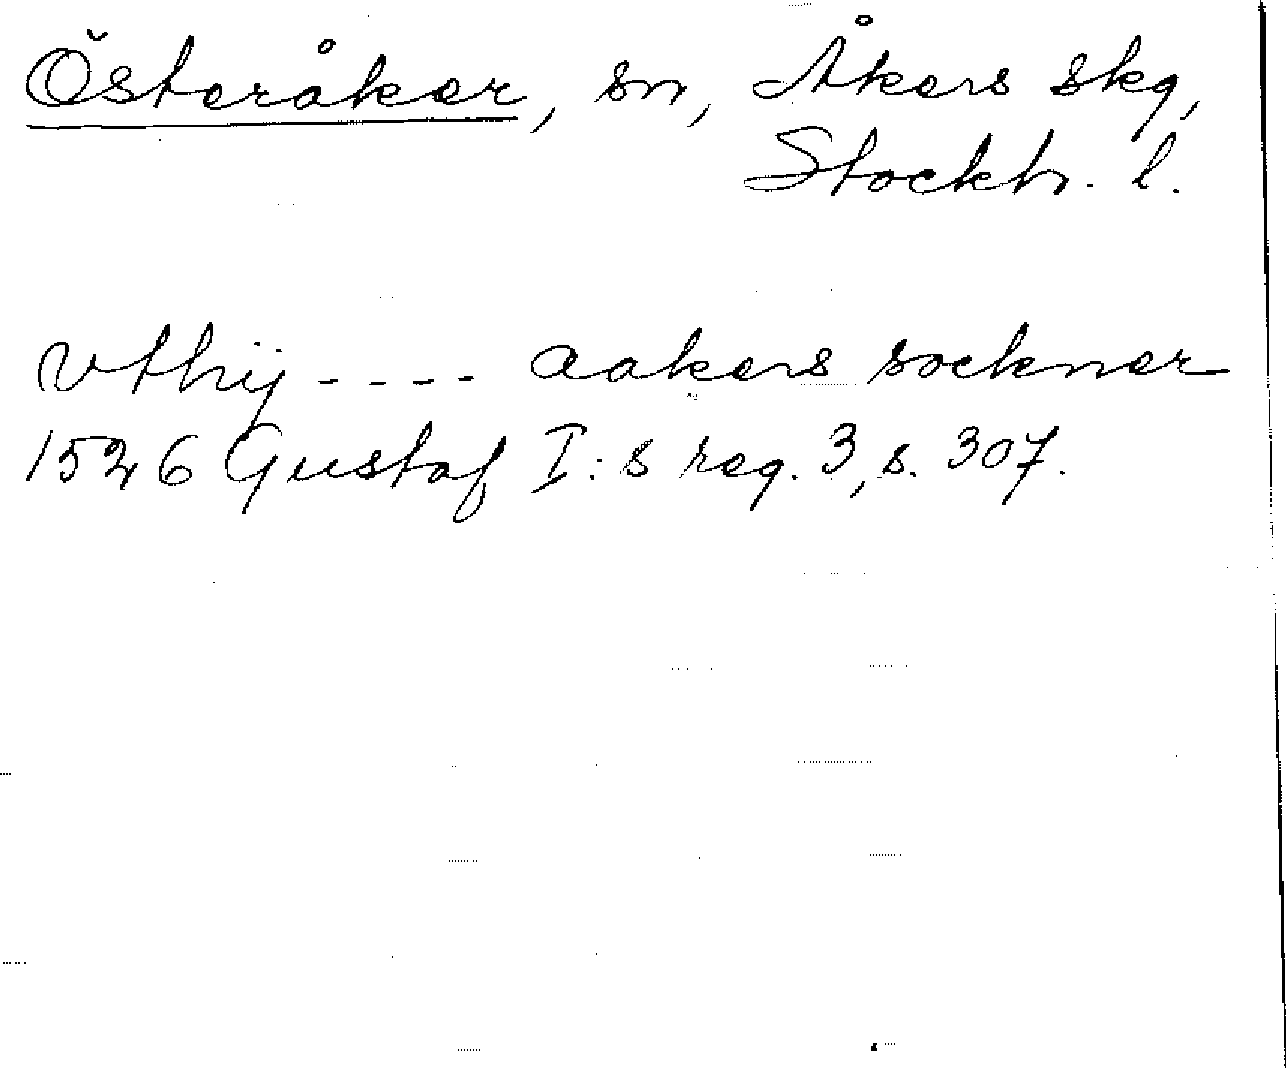 Österåker, sn, Åkers skg,
Stockh. l.
vthij ---- aakers soekner
1526 Gustaf I:s reg. 3, s. 307.